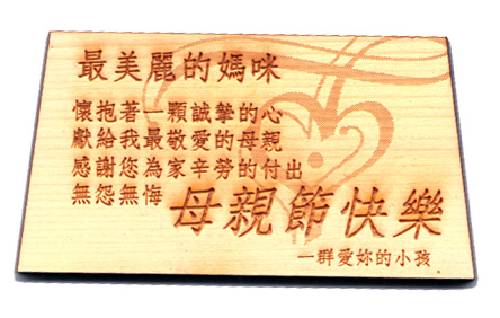 最美麗的媽咪
懷抱著一顆誠摯的心
獻給我最敬愛的母親
感謝您為家辛勞的付出
無怨無悔
母親節快樂
一群愛妳的小孩